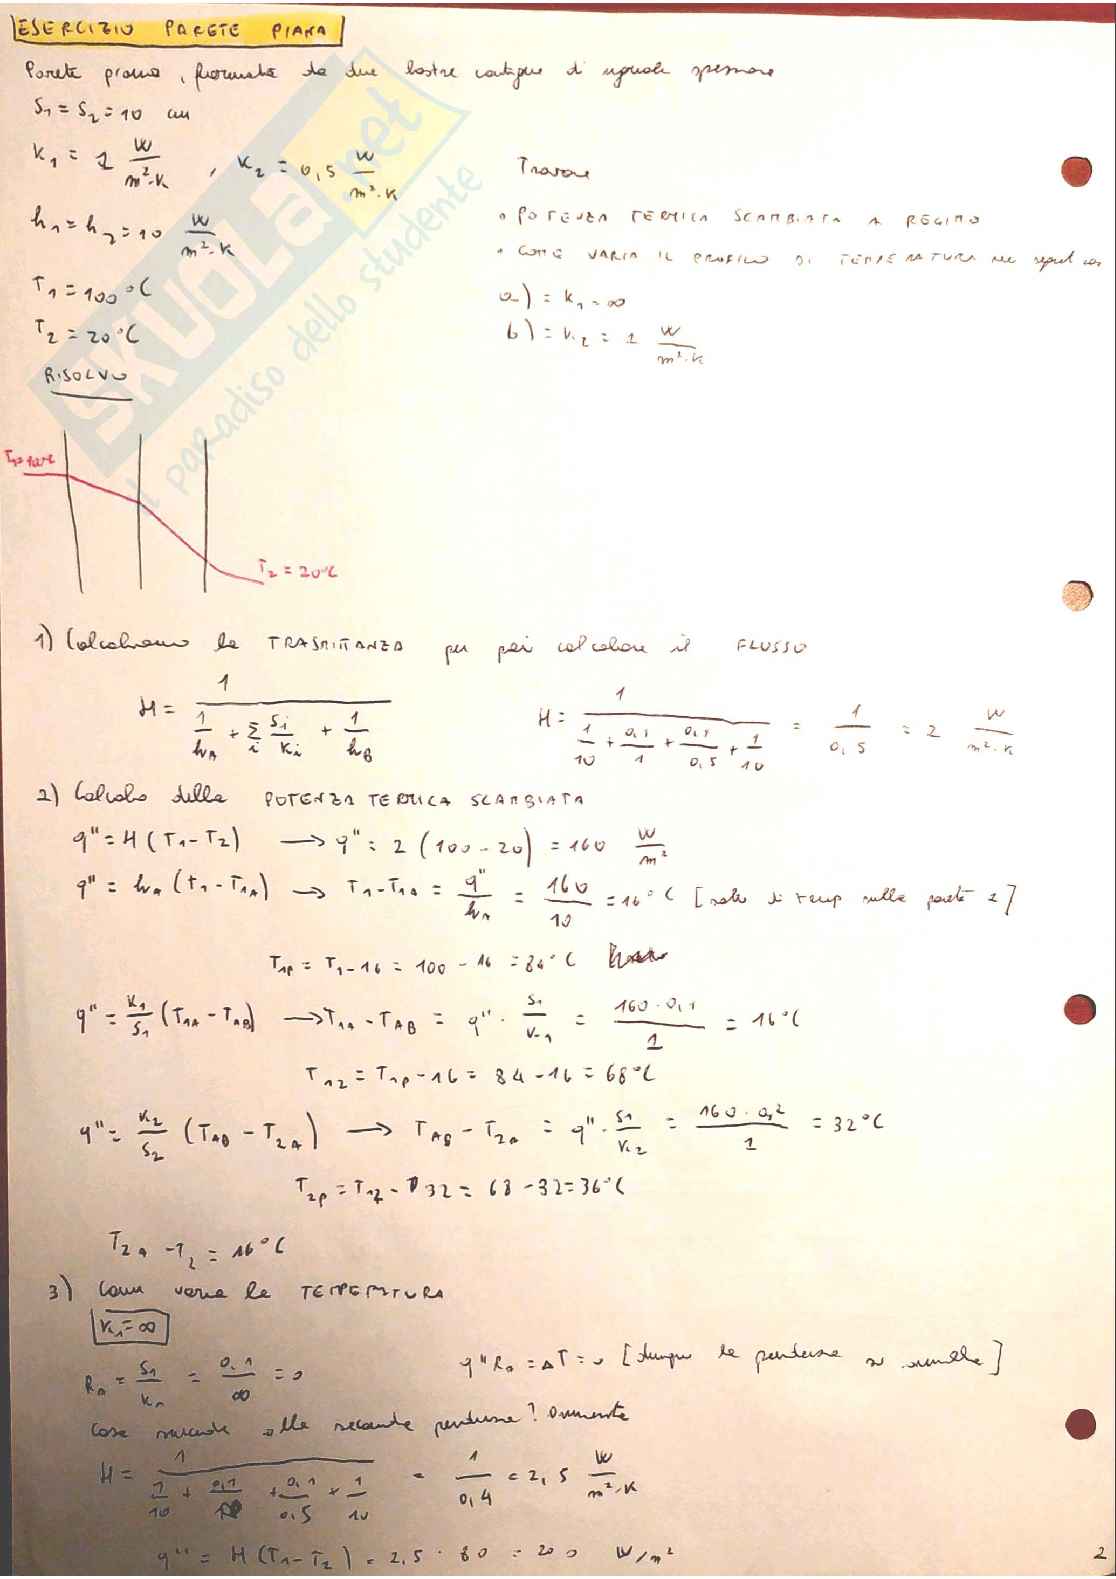 ESERCIZIO PARETE PIANA
Parete piana, formata da due lastre contigue di uguale spessore
S₁ = S₂ = 10 cm
K₁ = 1 W/m²·K , K₂ = 0,5 W/m²·K
h₁ = h₂ = 10 W/m²·K
T₁ = 100°C
T₂ = 20°C
Trovare
• POTENZA TERMICA SCAMBIATA A REGIME
• COME VARIA IL PROFILO DI TEMPERATURA nei seguenti casi
a) = K₁ = ∞
b) = K₂ = 1 W/m²·K
RISOLVO
T₂ = 20°C
SKUOLA.net
il paradiso dello studente
1) Calcoliamo la TRASMITTANZA per poi calcolare il FLUSSO
H = 1/(1/hA + Σi Si/Ki + 1/hB) H = 1/(1/10 + 0,1/1 + 0,1/0,5 + 1/10) = 1/0,5 = 2 W/m²·K
2) Calcolo della POTENZA TERMICA SCAMBIATA
q'' = H (T₁ - T₂) → q'' = 2 (100 - 20) = 160 W/m²
q'' = hA (T₁ - T1A) → T₁ - T1A = q''/hA = 160/10 = 16°C [salto di temp sulla parete 1]
T1p = T₁ - 16 = 100 - 16 = 84°C
q'' = K₁/S₁ (T1A - TAB) → T1A - TAB = q'' · S₁/K₁ = 160 · 0,1/1 = 16°C
T12 = T1p - 16 = 84 - 16 = 68°C
q'' = K₂/S₂ (TAB - T2A) → TAB - T2A = q'' · S₁/K₂ = 160 · 0,2/1 = 32°C
T2p = T12 - 32 = 68 - 32 = 36°C
T2A - T₂ = 16°C
3) Come varia la TEMPERATURA
K₁ = ∞
RA = S₁/KA = 0,1/∞ = 0 q'' RA = ΔT = 0 [dunque la pendenza si annulla]
Cosa succede alla seconda pendenza? Aumenta
H = 1/(1/10 + 0,1/∞ + 0,1/0,5 + 1/10) = 1/0,4 = 2,5 W/m²·K
q'' = H (T₁ - T₂) = 2,5 · 80 = 200 W/m²
2